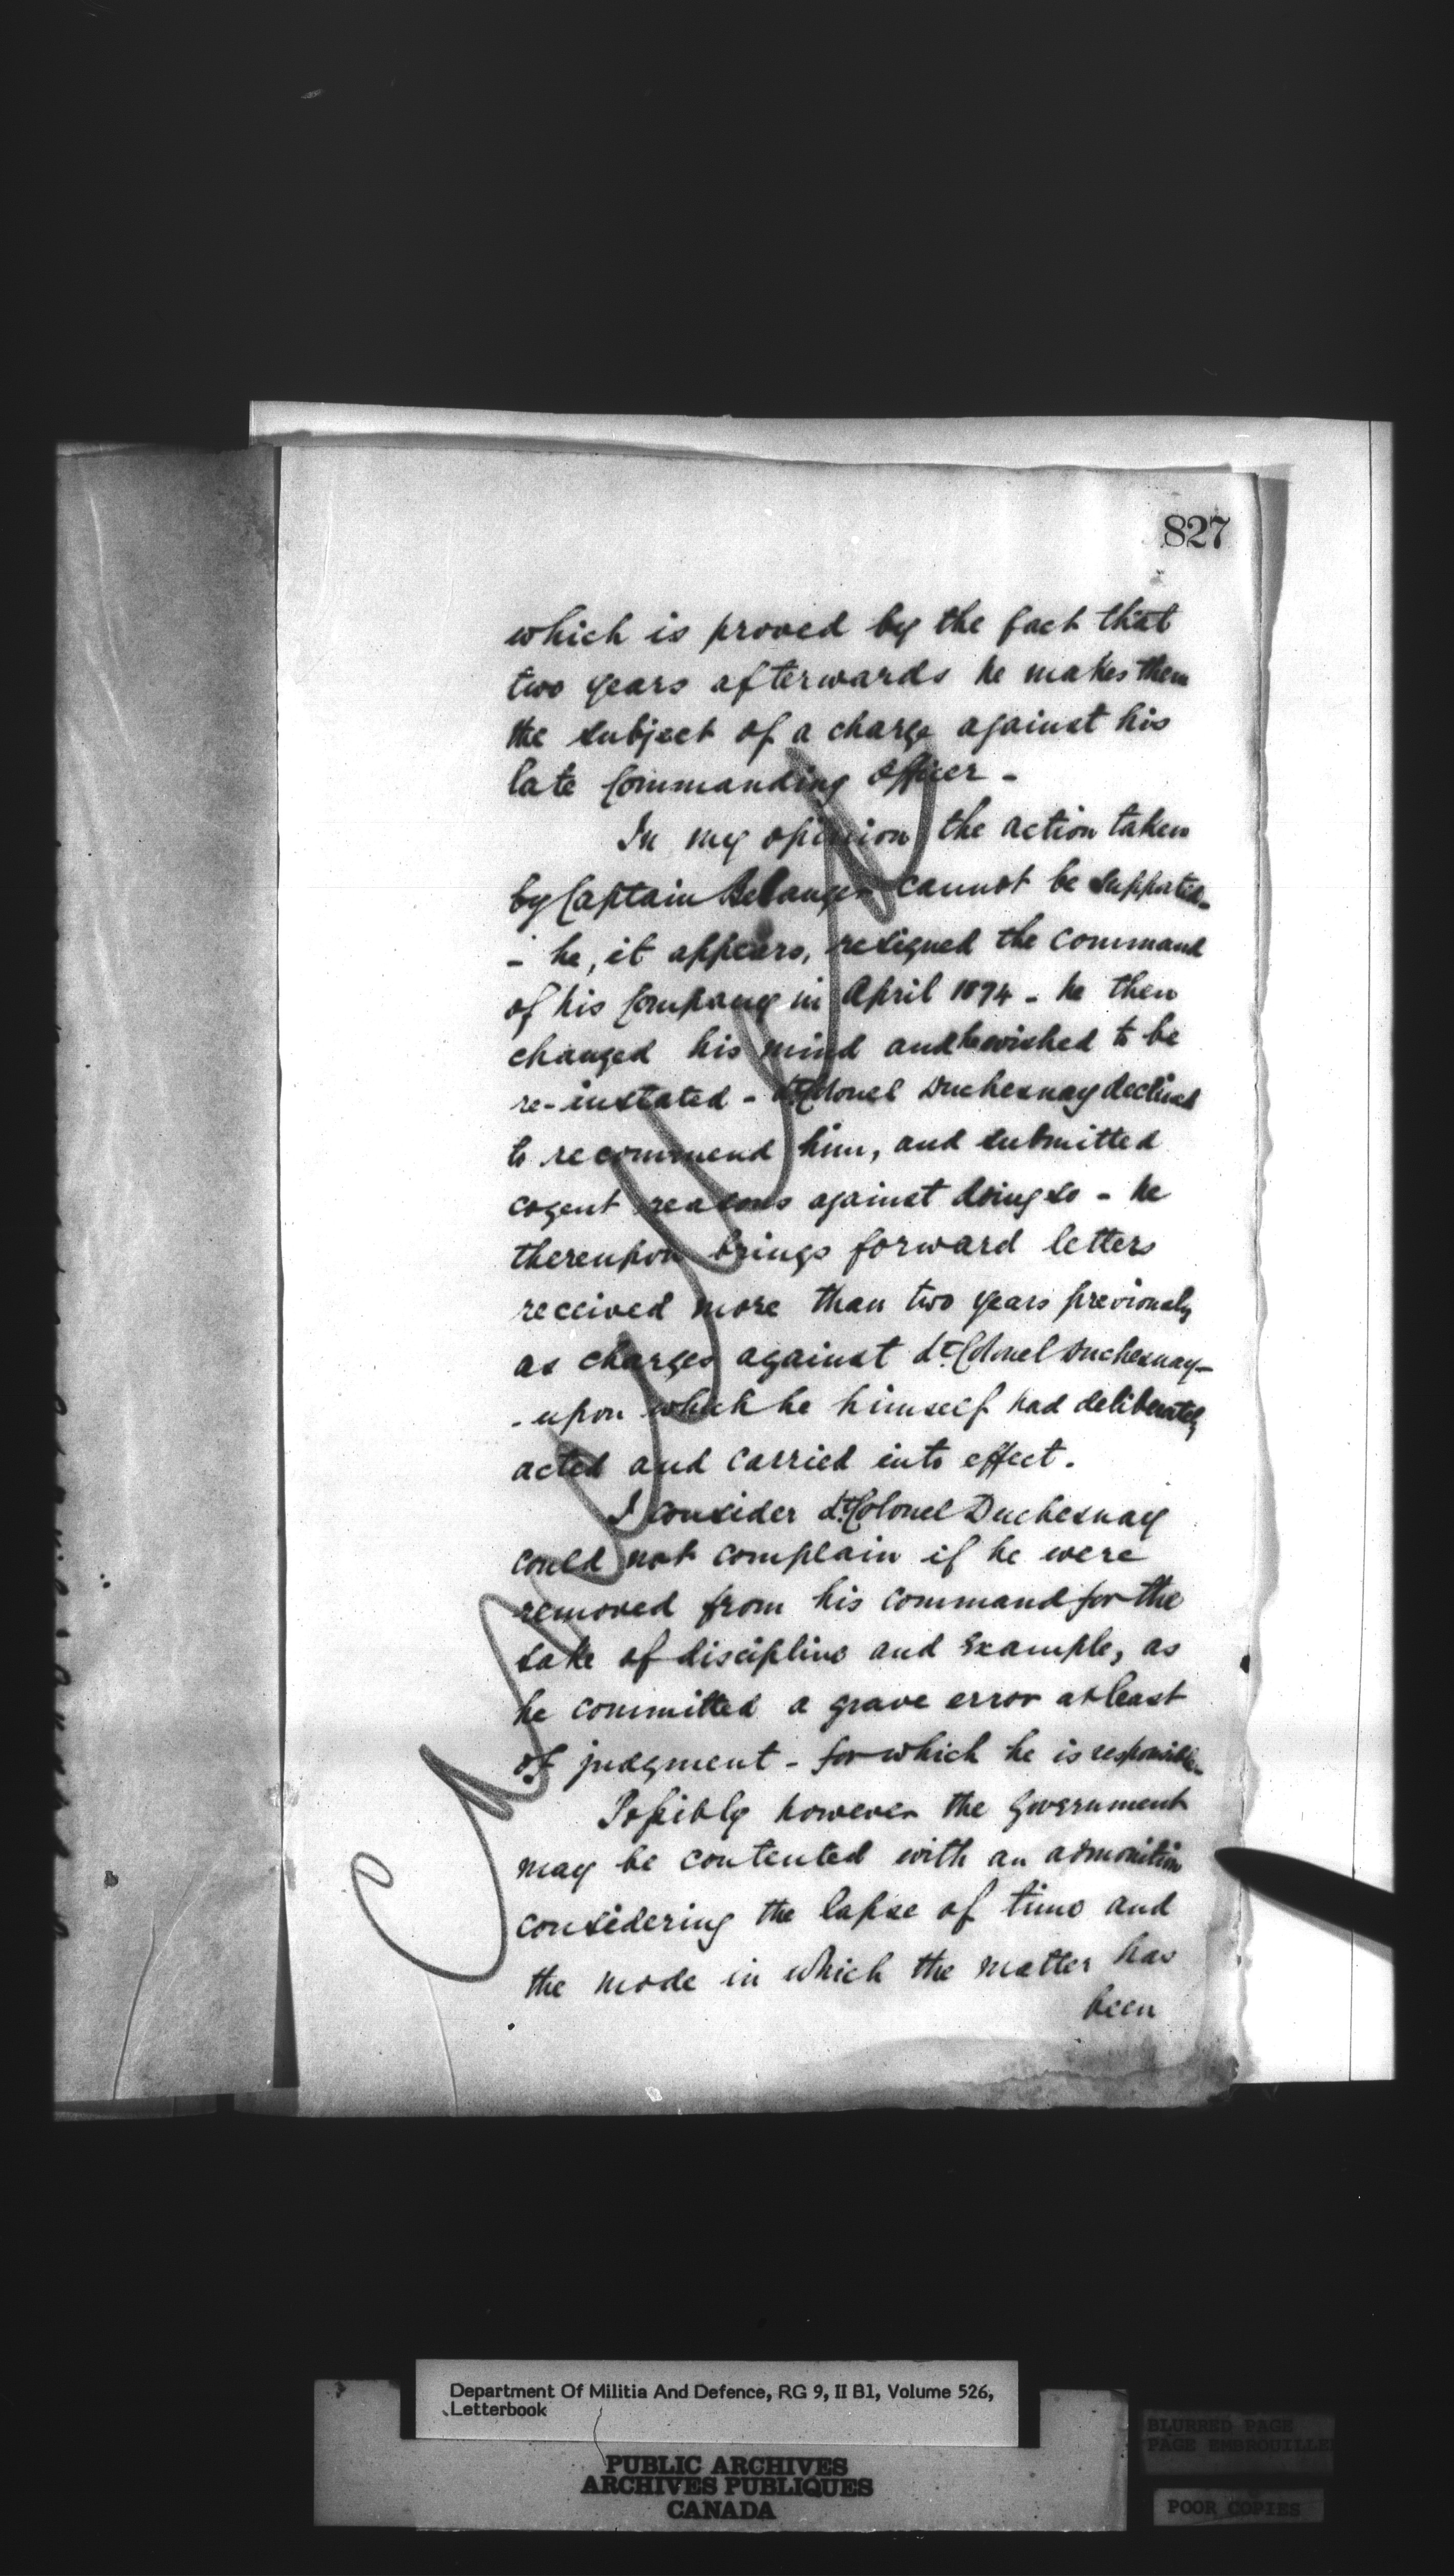 827
which is proved by the fact that
two years afterwards he makes them
the subject of a charge against his
late Commanding Officer -
In my opinion the action taken
by Captain Belanger cannot be supported -
- he, it appears, resigned the command
of his Company in April 1874 - he then
changed his mind and he wished to be
re-instated - Lt Colonel Duchesnay declined
to recommend him, and submitted
cogent reasons against doing so - he
thereupon brings forward letters
received more than two years previously
as charges against Lt. Colonel Duchesnay -
- upon which he himself had deliberately
acted and carried into effect.
I consider Lt. Colonel Duchesnay
could not complain if he were
removed from his command for the
sake of discipline and example, as
he committed a grave error at least
of judgment - for which he is responsible -
Possibly however the Government
may be contented with an admonition
considering the lapse of time and
the mode in which the matter has
been
Department Of Militia And Defence, RG 9, II B1, Volume 526,
Letterbook
PUBLIC ARCHIVES
ARCHIVES PUBLIQUES
CANADA
BLURRED PAGE
PAGE EMBROUILLE
POOR COPIES